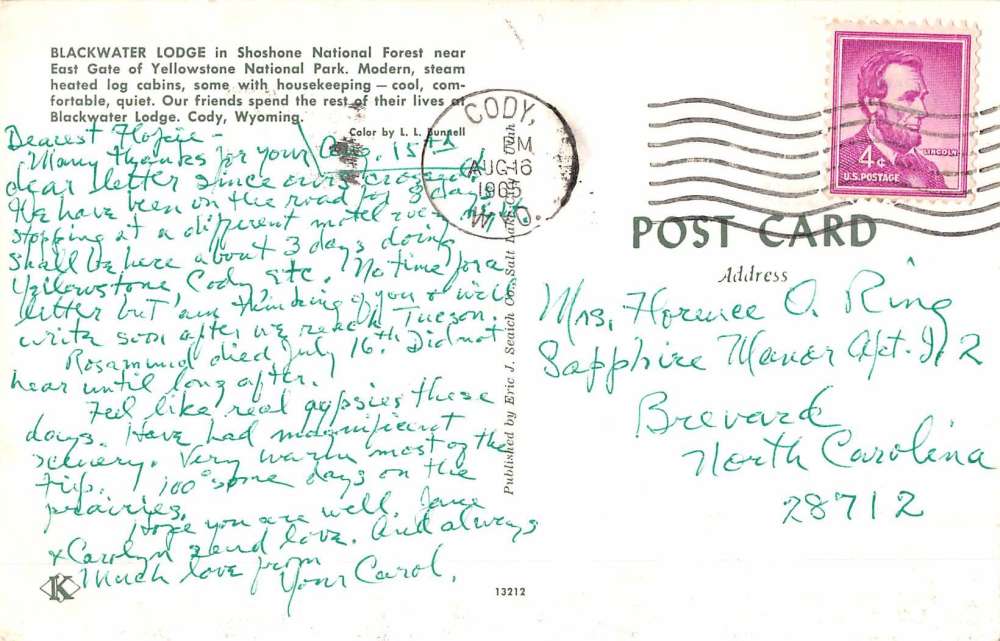 BLACKWATER LODGE in Shoshone National Forest near
East Gate of Yellowstone National Park. Modern, steam
heated log cabins, some with housekeeping — cool, com-
fortable, quiet. Our friends spend the rest of their lives at
Blackwater Lodge. Cody, Wyoming.
Color by L. L. Bunnell
Aug. 15th
Dearest
Many thanks for your
dear letter since ours crossed.
We have been on the road for 8 days
stopping at a different motel every night.
Shall be here about 3 days doing
Yellowstone, Cody etc. No time for a
letter but am thinking of you & will
write soon after we reach Tucson.
Rosamund died July 16th. Did not
hear until long after.
Feel like real gypsies these
days. Have had magnificent
scenery. Very warm most of the
trip. 100° some days on the
prairies.
Hope you are well. Jane
& Carolyn send love. And always
Much love from
Your Carol.
K
13212
Published by Eric J. Seaich Co., Salt Lake City, Utah
CODY,
PM
AUG 16
1965
WYO.
LINCOLN
4¢
U.S. POSTAGE
POST CARD
Address
Mrs. Florence O. Ring
Sapphire Manor Apt. D, 2
Brevard
North Carolina
28712